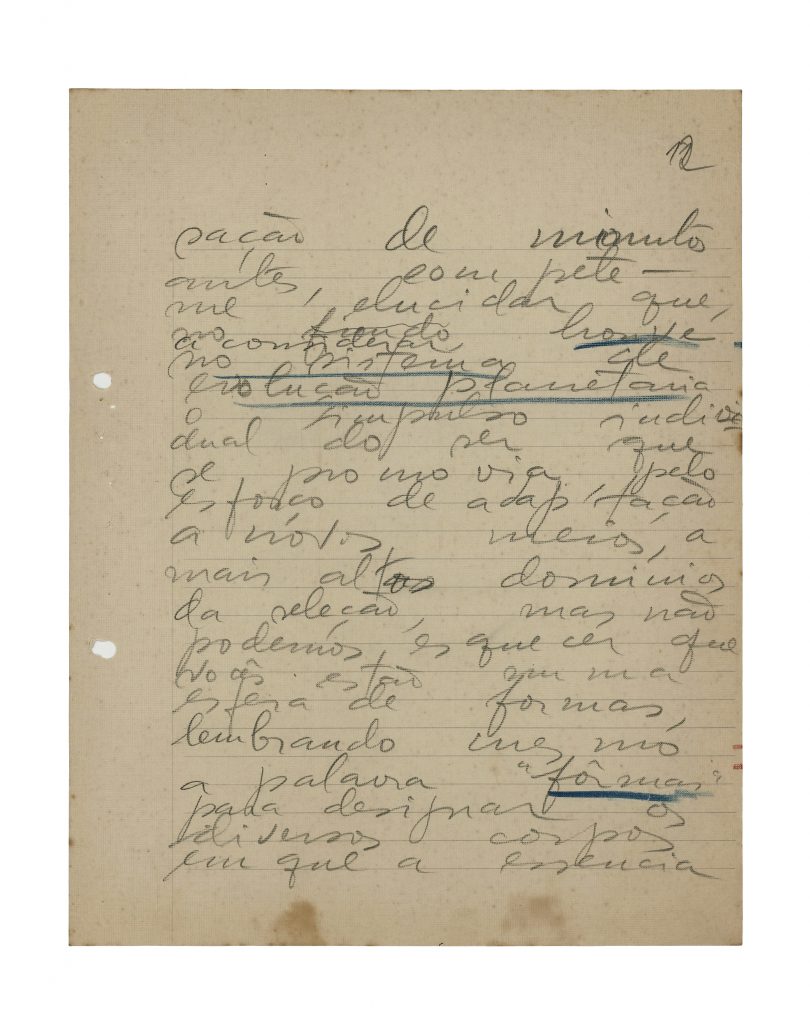 12
sação de minuto
antes, compete-
me elucidar que,
no fundo houve
a considerar
no sistema de
evolução planetaria
o impulso indivi
dual do ser que
se promovia, pelo
esforço de adaptação
a nóvos meios, a
mais altos dominios
da seleção, mas não
podemos esquecer que
vocês estão numa
esfera de formas,
lembrando mesmo
a palavra "fôrmas"
para designar os
diversos corpos
em que a essencia